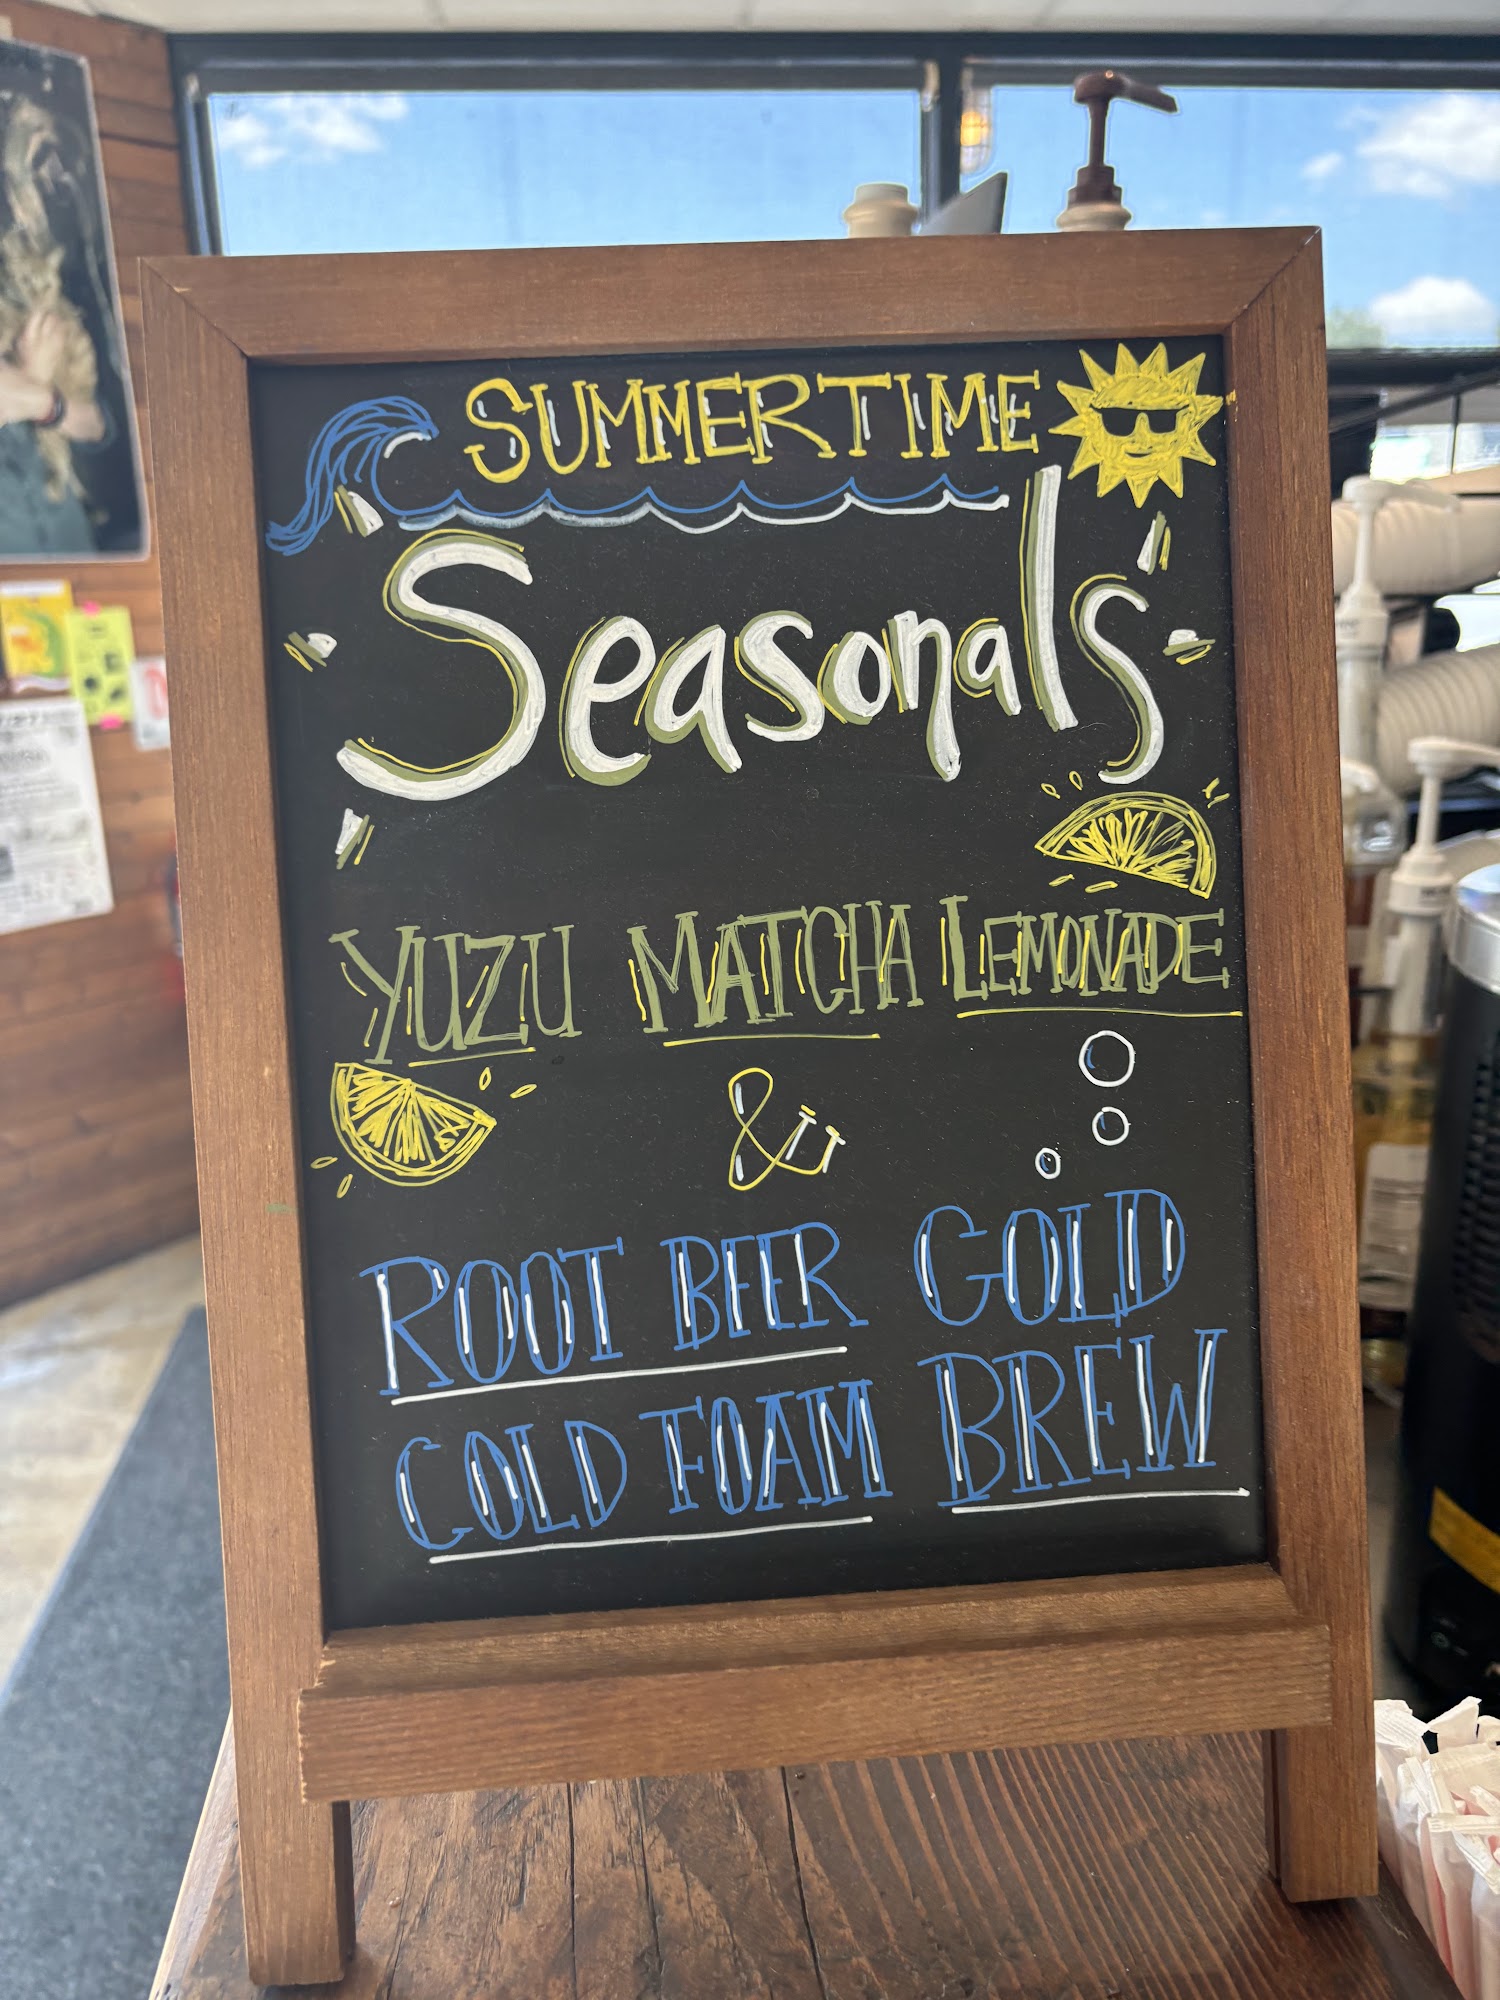 SUMMERTIME
Seasonals
YUZU MATCHA LEMONADE
&
ROOT BEER COLD
COLD FOAM BREW